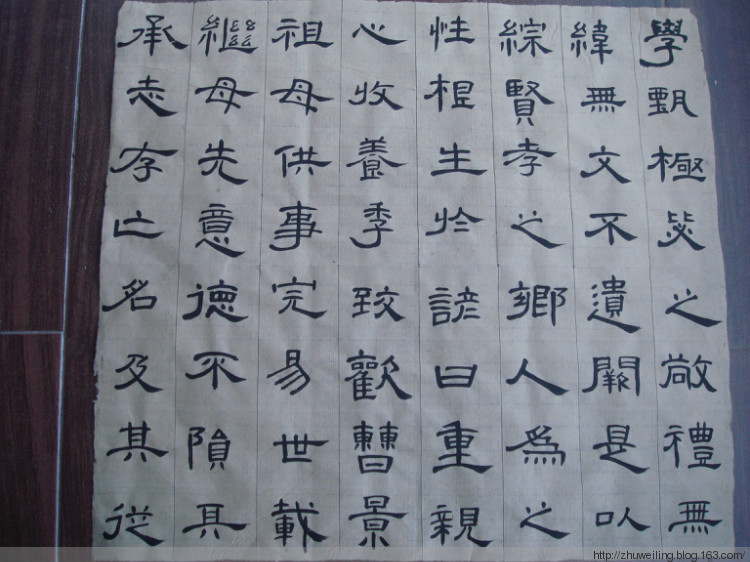 學甄極毖之敬禮無
緯無文不遺闕是以
綜賢孝之鄉人爲之
性根生於諺曰重親
心收養季致歡曹景
祖母供事完易世載
繼母先意德不隕其
承志存亡名及其從
http://zhuweiling.blog.163.com/